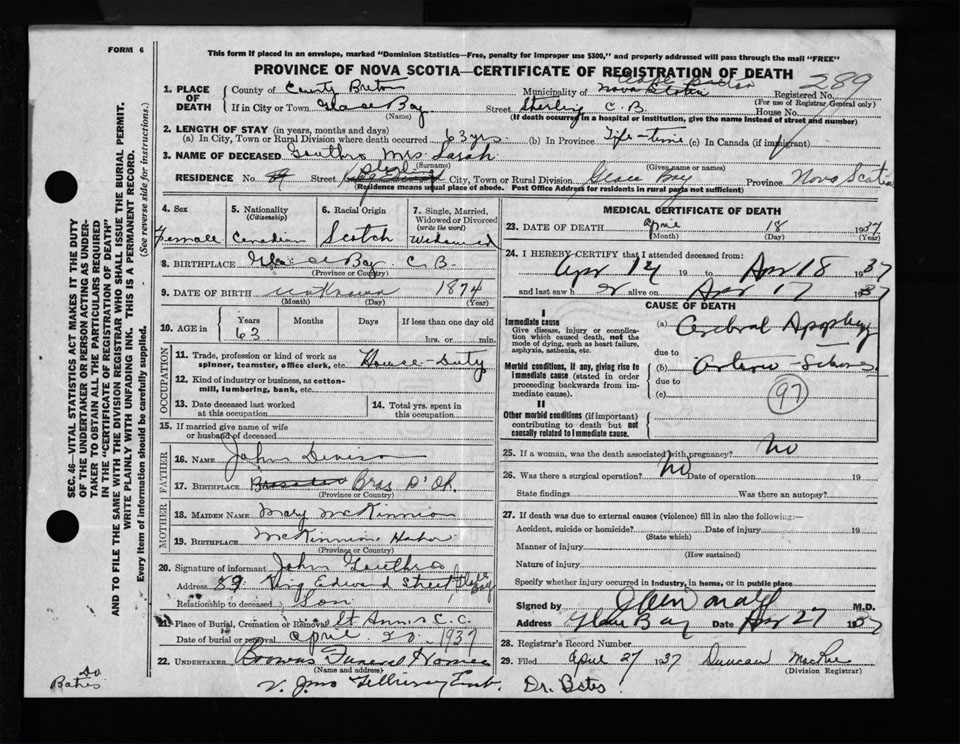 FORM 6
This form if placed in an envelope, marked "Dominion Statistics—Free, penalty for improper use $300," and properly addressed will pass through the mail "FREE"
PROVINCE OF NOVA SCOTIA—CERTIFICATE OF REGISTRATION OF DEATH
289
1. PLACE OF DEATH
County of County Breton Municipality of Cape Breton Nova Scotia Registered No.
(For use of Registrar General only)
If in City or Town Glace Bay Street Sterling C.B House No.
(Name) (If death occurred in a hospital or institution, give the name instead of street and number)
2. LENGTH OF STAY (in years, months and days)
(a) In City, Town or Rural Division where death occurred 63 yrs. (b) In Province Life-time (c) In Canada (if immigrant)
3. NAME OF DECEASED Gouthro Mrs Sarah
(Surname) (Given name or names)
RESIDENCE No. Street City, Town or Rural Division Glace Bay Province Nova Scotia
(Residence means usual place of abode. Post Office Address for residents in rural parts not sufficient)
4. Sex
Female
5. Nationality
(Citizenship)
Canadian
6. Racial Origin
Scotch
7. Single, Married, Widowed or Divorced
(write the word)
Widowed
8. BIRTHPLACE Glace Bay C.B.
(Province or Country)
9. DATE OF BIRTH unknown 1874
(Month) (Day) (Year)
10. AGE in Years Months Days If less than one day old
63 hrs. or min.
OCCUPATION
11. Trade, profession or kind of work as spinner, teamster, office clerk, etc. House-Duty
12. Kind of industry or business, as cotton-mill, lumbering, bank, etc.
13. Date deceased last worked at this occupation
14. Total yrs. spent in this occupation
15. If married give name of wife or husband of deceased
FATHER
16. NAME John
17. BIRTHPLACE Bras D'Or.
(Province or Country)
MOTHER
18. MAIDEN NAME Mary McKinnion
19. BIRTHPLACE McKinnion Harbor
(Province or Country)
20. Signature of informant John Gouthro
Address 89 King Edward Street Glace Bay
Relationship to deceased Son
21. Place of Burial, Cremation or Removal St Ann's C.C.
Date of burial or removal April 20. 1937
22. UNDERTAKER Funeral Home
(Name and address)
MEDICAL CERTIFICATE OF DEATH
23. DATE OF DEATH April 18 1937
(Month) (Day) (Year)
24. I HEREBY CERTIFY that I attended deceased from:
Apr 14 19 to Apr 18 1937
and last saw h er alive on Apr 17 1937
CAUSE OF DEATH
I
Immediate cause
Give disease, injury or complication which caused death, not the mode of dying, such as heart failure, asphyxia, asthenia, etc.
(a) Cerebral Apoplexy
due to
Morbid conditions, if any, giving rise to immediate cause (stated in order proceeding backwards from immediate cause).
(b)
due to
(c)
97
II
Other morbid conditions (if important) contributing to death but not causally related to immediate cause.
25. If a woman, was the death associated with pregnancy? No
26. Was there a surgical operation? No Date of operation 19
State findings Was there an autopsy?
27. If death was due to external causes (violence) fill in also the following:—
Accident, suicide or homicide? Date of injury 19
(State which)
Manner of injury
(How sustained)
Nature of injury
Specify whether injury occurred in industry, in home, or in public place
Signed by M.D.
Address Glace Bay Date Apr 27 1937
28. Registrar's Record Number
29. Filed April 27 1937 Duncan MacRae
(Division Registrar)
Dr. Bates
Bates
SEC. 46—VITAL STATISTICS ACT MAKES IT THE DUTY
OF THE UNDERTAKER OR PERSON ACTING AS UNDERTAKER TO OBTAIN ALL THE PARTICULARS REQUIRED
IN THE "CERTIFICATE OF REGISTRATION OF DEATH"
AND TO FILE THE SAME WITH THE DIVISION REGISTRAR WHO SHALL ISSUE THE BURIAL PERMIT.
WRITE PLAINLY WITH UNFADING INK. THIS IS A PERMANENT RECORD.
Every item of information should be carefully supplied. (See reverse side for instructions.)